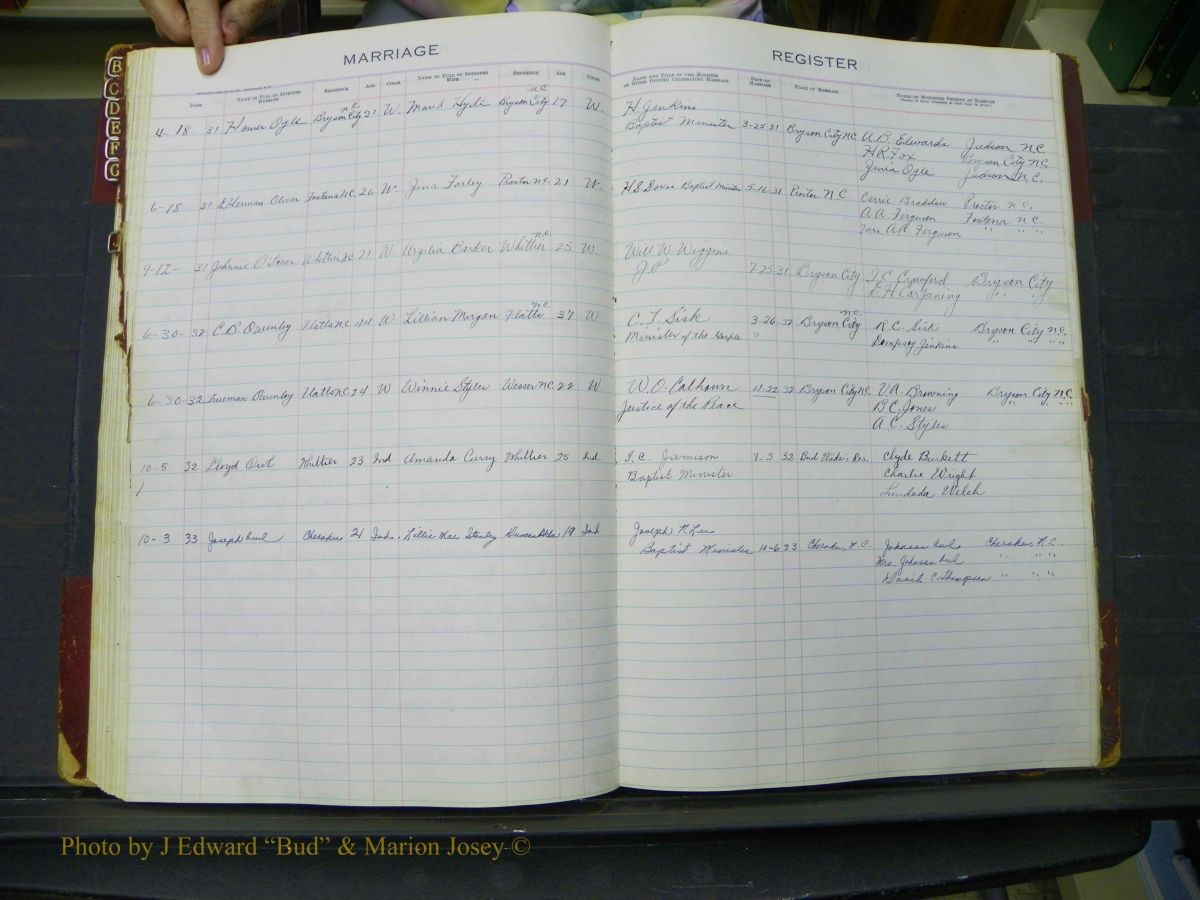 MARRIAGE REGISTER
B
C
D
E
F
G
J
DATE NAME IN FULL OF INTENDED HUSBAND RESIDENCE AGE COLOR NAME IN FULL OF INTENDED WIFE RESIDENCE AGE COLOR NAME AND TITLE OF THE MINISTER OR OTHER OFFICER CELEBRATING MARRIAGE DATE OF MARRIAGE PLACE OF MARRIAGE NAMES OF WITNESSES PRESENT AT MARRIAGE
4-18-31 Homer Ogle Bryson City N.C. 21 W. Maud Hyde Bryson City N.C. 17 W. H Jenkins
Baptist Minister 3-25-31 Bryson City N.C. A.B. Edwards Judson N.C.
H.R. Fox Bryson City N.C.
Ogle Judson N.C.
6-18-31 Oliver Fontana N.C. 26 W. Farley Proctor N.C. 21 W. Baptist Minister 5-16-31 Proctor N.C. Carrie Bradshaw Proctor N.C.
A.A. Ferguson Fontana N.C.
Mrs. A.A. Ferguson " " "
9-12-31 Johnnie Whittier N.C. 21 W Barker Whittier N.C. 25 W Will W. Wiggins
J.P. 7-25-31 Bryson City Crawford Bryson City
" "
6-30-32 C.B. Flats N.C. 44 W Lillian Morgan Flats N.C. 37 W C.T. Sisk
Minister of the Gospel 3-26-32 Bryson City N.C. R.C. Sisk Bryson City N.C.
Dempsey Jenkins " " " "
6-30-32 Flats N.C. 24 W Winnie Styles Wesser N.C. 22 W W.O. Calhoun
Justice of the Peace 4-22-32 Bryson City N.C. V.A. Browning Bryson City N.C.
B.C. Jones " " "
A.C. Styles
10-5 32 Lloyd Owl Whittier 23 Ind Amanda Curry Whittier 25 Ind Jamison
Baptist Minister 32 Bud Wade's Res. Clyde Burkett
Charlie Wright
Welch
10-3 33 Joseph Owl Cherokee 21 Ind. Lillie Mae Stanley 19 Ind Joseph N. Lee
Baptist Minister 10-6-33 Cherokee, N.C. Johnson Owl Cherokee, N.C.
Mrs. Johnson Owl " " "
C. Thompson " " "
Photo by J Edward “Bud” & Marion Josey ©